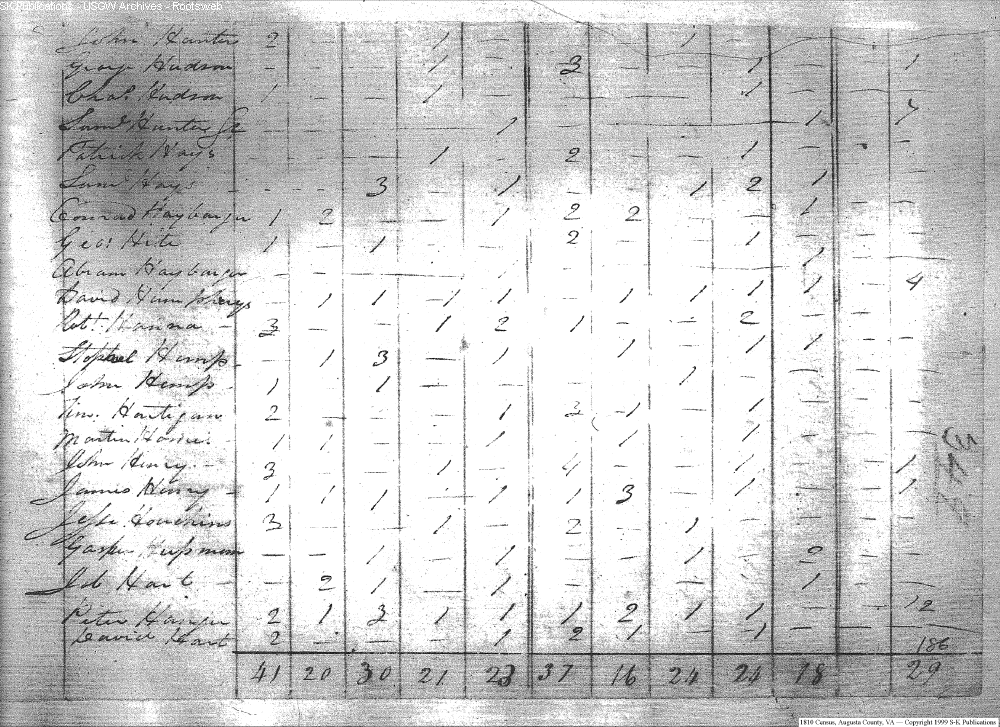 SK Publications - USGW Archives - Rootsweb
John Hunter 2 – – 1 – – – 1 – – –
George Hudson – – – 1 – 3 – – 1 – 1
Chas. Hudson 1 – – 1 – – – – 1 – –
Saml Hunter – – – – 1 – – – – 1 7
Patrick Hays – – – 1 – 2 – – 1 – –
Saml Hays – – 3 – 1 – – 1 2 1 –
Conrad Haybarger 1 2 – – 1 2 2 – – 1 –
Geo. Hite 1 – 1 – – 2 – – 1 – –
Abram Haybarger – – – – 1 – – – – 1 –
David Humphreys – 1 1 1 1 – 1 1 1 1 4
Robt. Hanna – 3 – – 1 2 1 – – 2 – –
Hemp – – 1 3 – 1 – 1 – 1 1 –
John Hemp – 1 – 1 – – – – 1 – – –
Hartigan 2 – – – 1 3 1 – 1 – –
Martin 1 1 – – 1 – 1 – 1 – –
John Henry – 3 – – 1 – 4 – – 1 – 1
James Henry – 1 1 1 – 1 1 3 – 1 – 1
Jesse Houchins 3 – – 1 – 2 – 1 – – –
– – 1 – 1 – – 1 – 2 –
Job Hart – – 2 1 – 1 – – – – 1 –
Peter Hanger 2 1 3 1 1 1 2 1 1 – 12
David Hart 2 – – – 1 2 1 – 1 – –
186
41 20 30 21 23 37 16 24 24 18 29
343
1810 Census, Augusta County, VA — Copyright 1999 S-K Publications